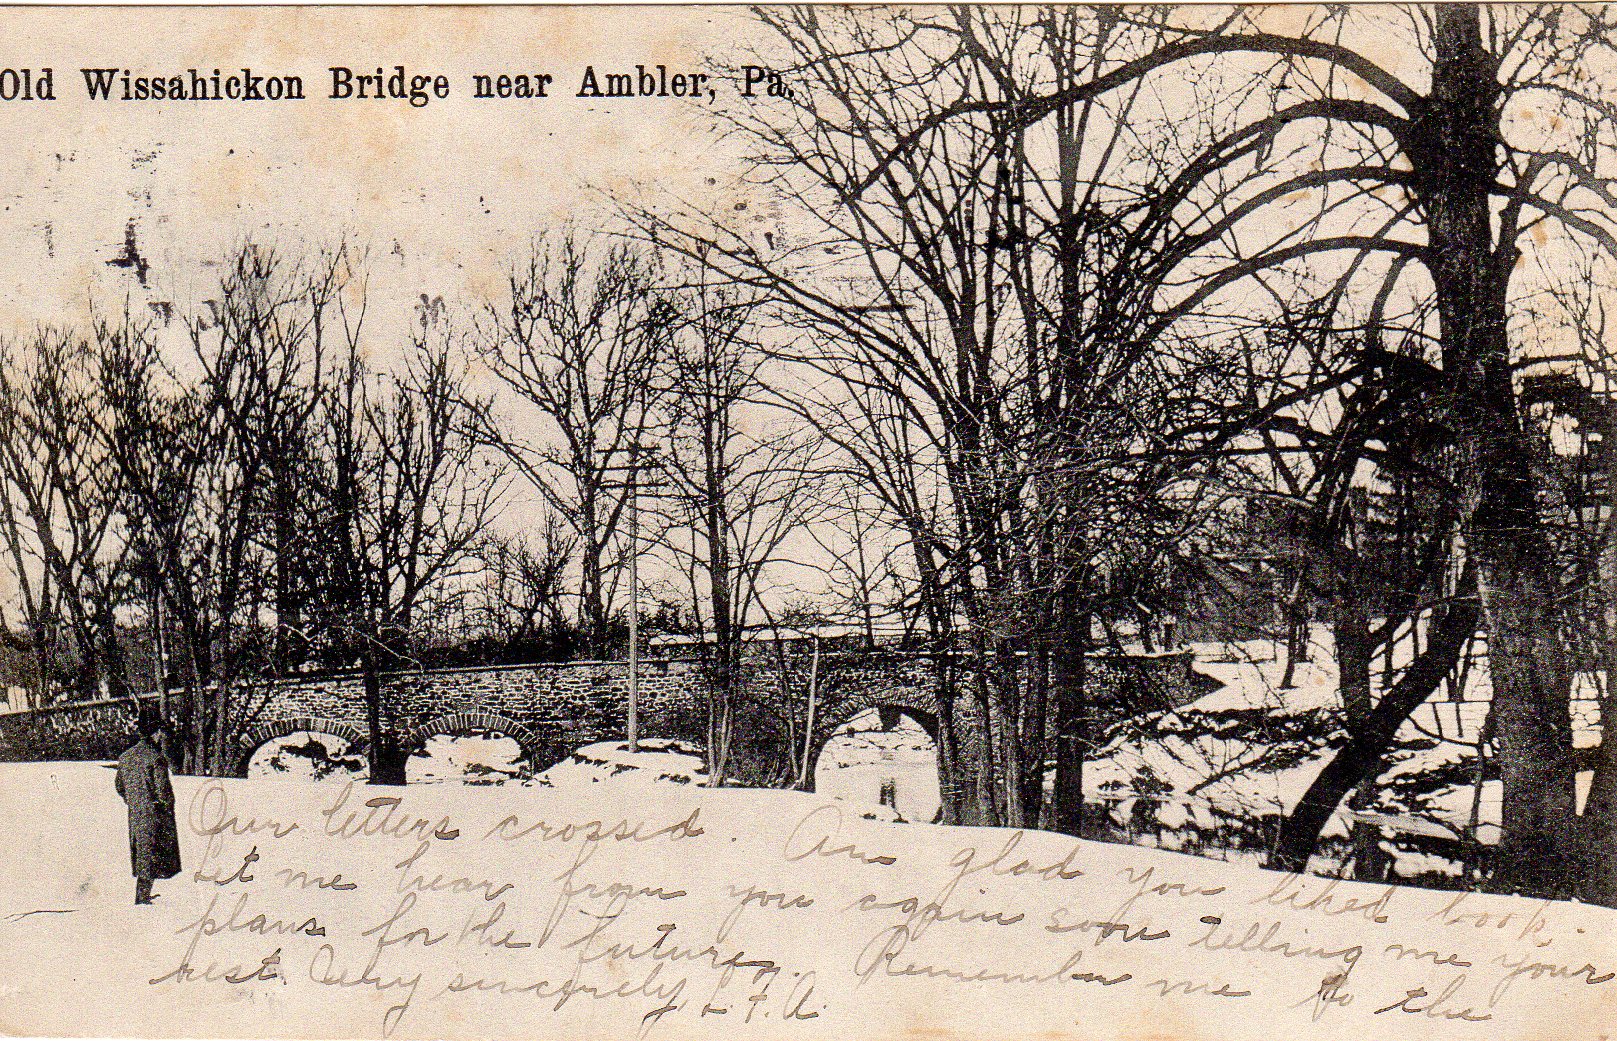 Old Wissahickon Bridge near Ambler, Pa.
Our letters crossed. Am glad you liked book.
Let me hear from you again soon telling me your
plans for the future. Remember me to the
rest. Very sincerely, L. F. A.